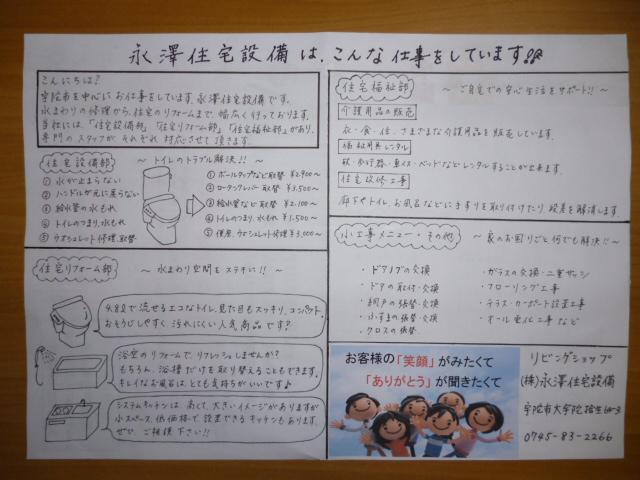 永澤住宅設備は、こんな仕事をしています!!
こんにちは?
宇陀市を中心にお仕事をしています。永澤住宅設備です。
水まわりの修理から、住宅のリフォームまで、幅広く行っております。
当社には、「住宅設備部」「住宅リフォーム部」「住宅福祉部」があり、
専門のスタッフがそれぞれ対応させて頂きます。
住宅設備部 ～トイレのトラブル解決!!～
① 水が止まらない
② ハンドルが元に戻らない
③ 給水管の水もれ
④ トイレのつまり、水もれ
⑤ ウオシュレット修理、取替
① ボールタップなど取替 ¥2,900～
② ロータンクレバー取替 ¥3,500～
③ 給水管など取替 ¥2,100～
④ トイレのつまり、水もれ ¥1,500～
⑤ 便座、ウオシュレット修理 ¥3,000～
住宅リフォーム部 ～水まわり空間をステキに!!～
4.8ℓで流せるエコなトイレ。見た目もスッキリ、コンパクト。
おそうじしやすく、汚れにくい人気商品です?
浴室のリフォームで、リフレッシュしませんか?
もちろん、浴槽だけを取り替えることもできます。
キレイなお風呂はとても気持ちがいいです♪
システムキッチンは高くて、大きいイメージがありますが
小スペース、低価格で設置できるキッチンもあります。
ぜひ、ご相談下さい!!
住宅福祉部 ～ご自宅での安心生活をサポート!!～
介護用品の販売
衣・食・住、さまざまな介護用品を販売しています。
福祉用具レンタル
杖・歩行器・車イス・ベッドなどレンタルすることが出来ます。
住宅改修工事
廊下やトイレ、お風呂などに手すりを取り付けたり、段差を解消します。
小工事メニュー・その他 ～家のお困りごと何でも解決!!～
・ドアノブの交換
・ドアの取付・交換
・網戸の張替・交換
・ふすまの張替・交換
・クロスの張替
・ガラスの交換・二重サッシ
・フローリング工事
・テラス・カーポート設置工事
・オール電化工事など
お客様の「笑顔」がみたくて
「ありがとう」が聞きたくて
リビングショップ
(株)永澤住宅設備
宇陀市大宇陀拾生
0745-83-2266